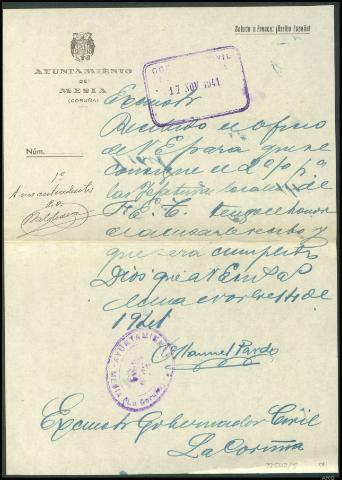 Saludo a Franco: ¡Arriba España!
AYUNTAMIENTO
DE
MESIA
(CORUÑA)
17 NOV 1941
Núm.
Excmo Sr
Recibido el oficio
de V E para que se
consigne el 2 % p a
las Jefaturas locales de
F. E. T. tengo el honor
de acusar recibo y
que será cumplido
Dios gue a V E m a
Mesia Novbre 14 de
1941
Manuel Pardo
1º
A sus antecedentes
AYUNTAMIENTO
MESIA
(La Coruña)
Excmo Sr Gobernador Civil
La Coruña